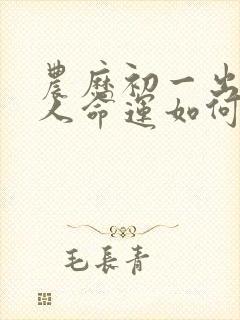 農歷初一出
人命運如何
毛長青